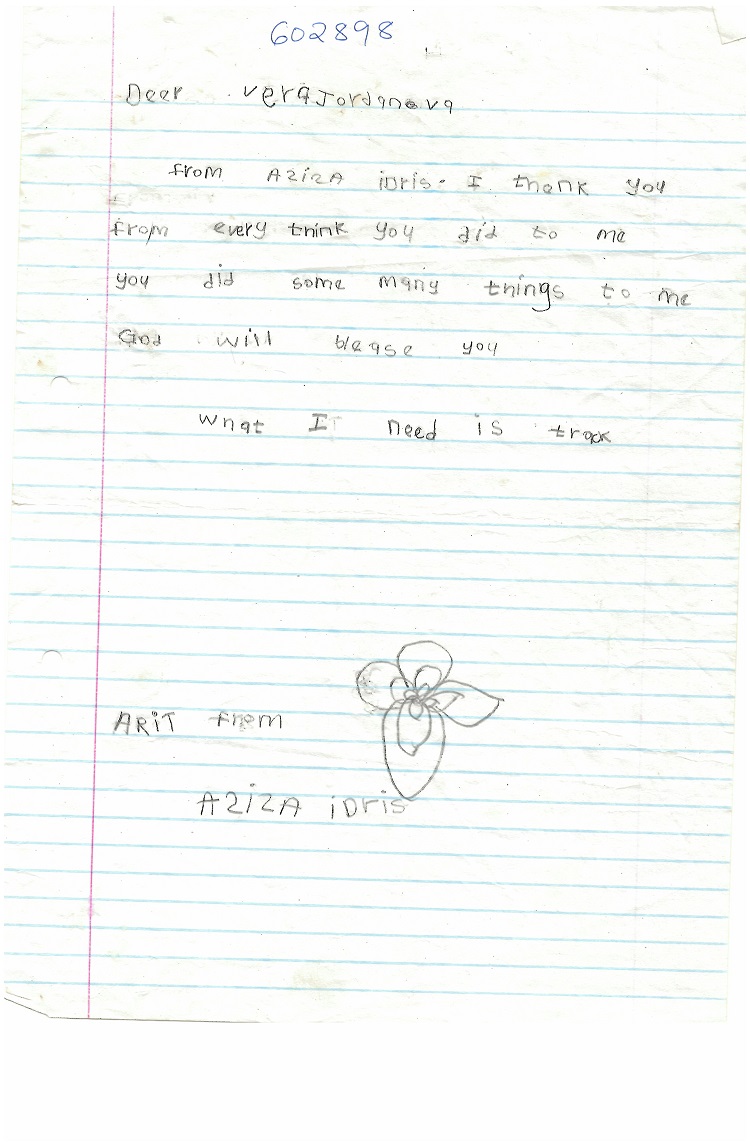 602898
Deer veraJordanova
from AzizA iDris. I thank you
from every think you did to me
you did some many things to me
God will blease you
What I need is trook
ARiT from
AZiZA iDris